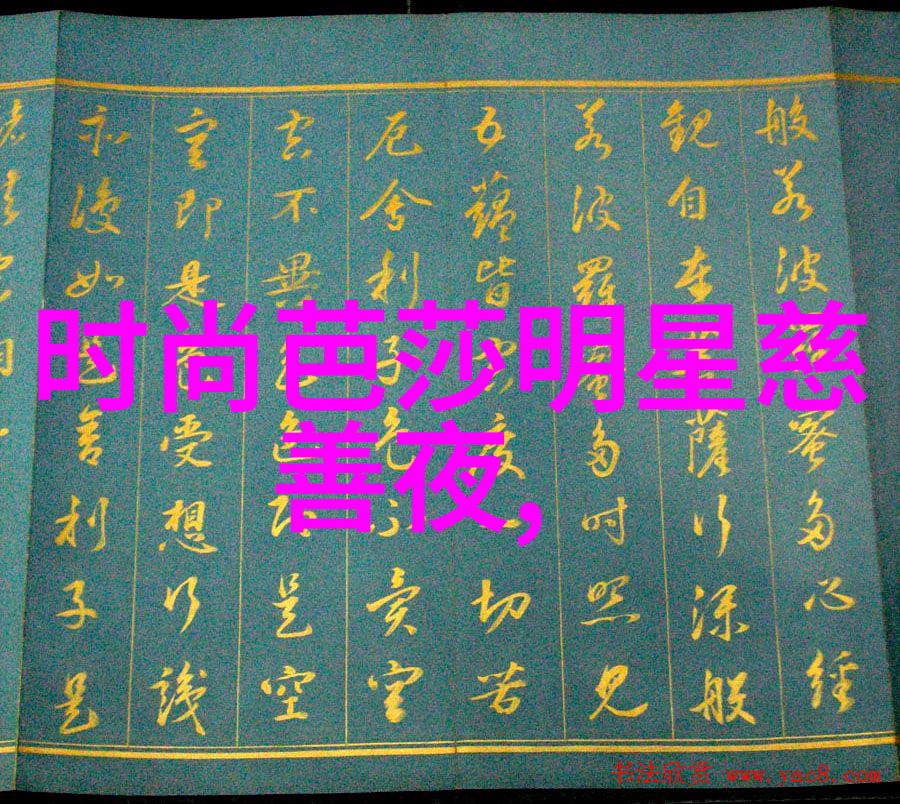 般若波蜜多心經
觀自在薩行深般
若波羅蜜多時照見
五蘊皆空度一切苦
厄舍利子色不異空
空不異色色即是空
空即是色受想行識
亦復如是舍利子是
时尚芭莎明星慈
善夜,
书法欣赏 www.yac8.com